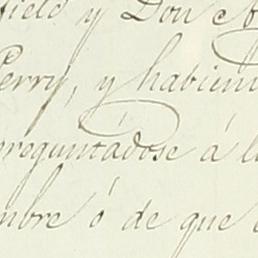 field y Don
Perry, y habien
preguntádose á l
mbre ó de que